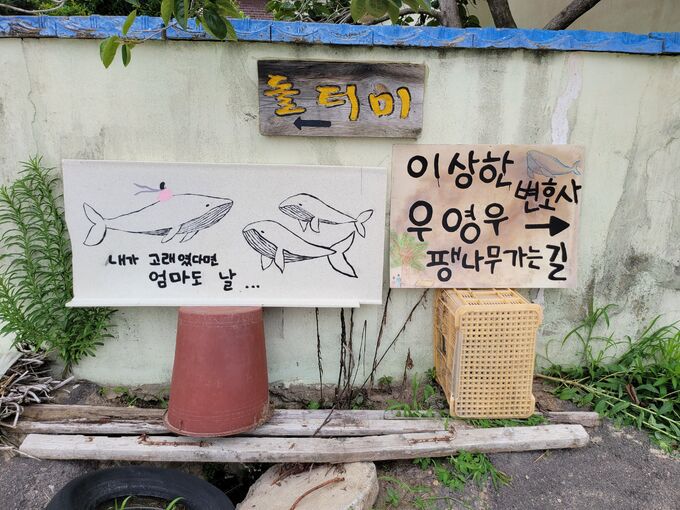 돌터미
내가 고래였다면
엄마도 날...
이상한
변호사
우영우 →
팽나무가는길